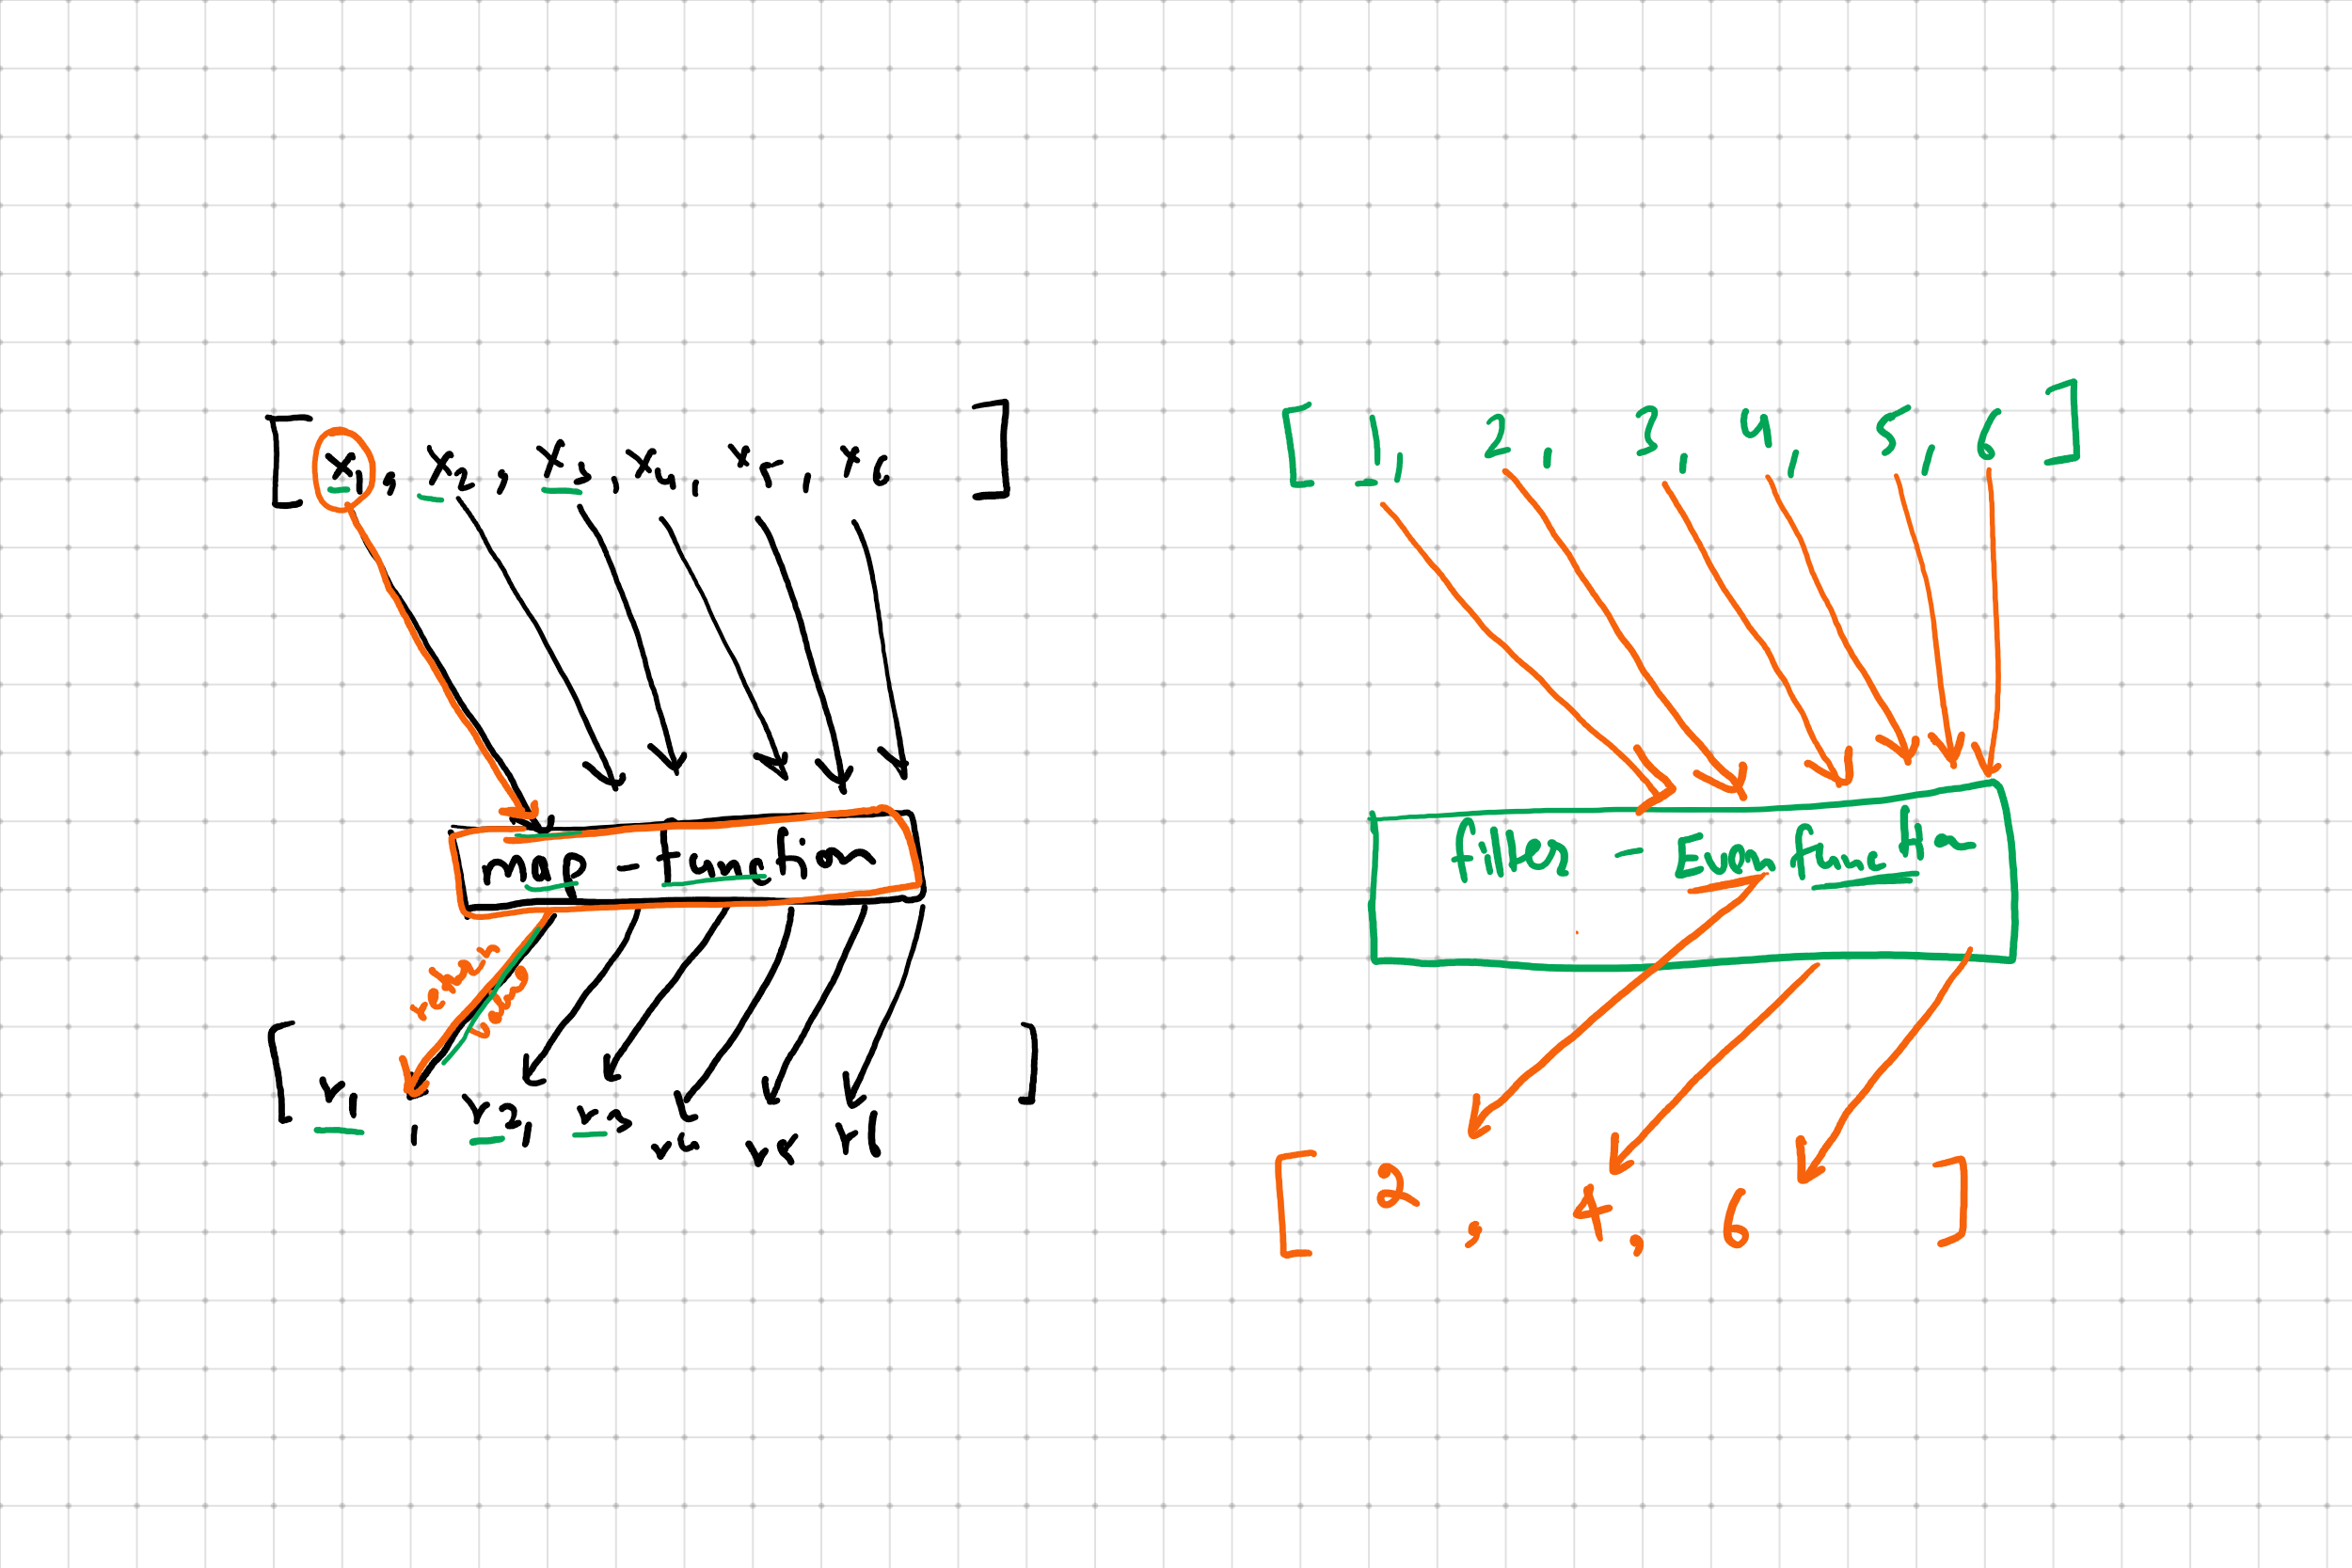 [ x1, x2, x3, x4, x5, x6 ]
map - function
return value
[ Y1, Y2, Y3 Y4 Y5 Y6 ]
[ 1, 2, 3, 4, 5, 6 ]
filter - Even function
[ 2, 4, 6 ]